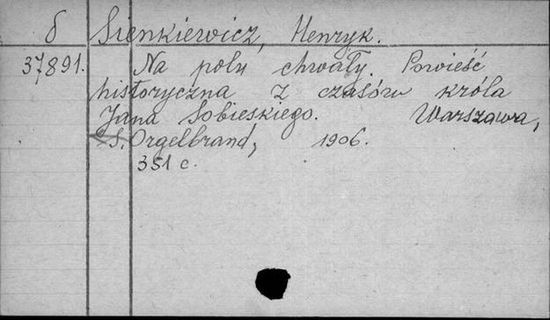 б Sienkiewicz, Henryk.
37891. Na polu chwały. Powieść
historyczna z czasów króla
Jana Sobieskiego. Warszawa,
S. Orgelbrand, 1906.
351 c.